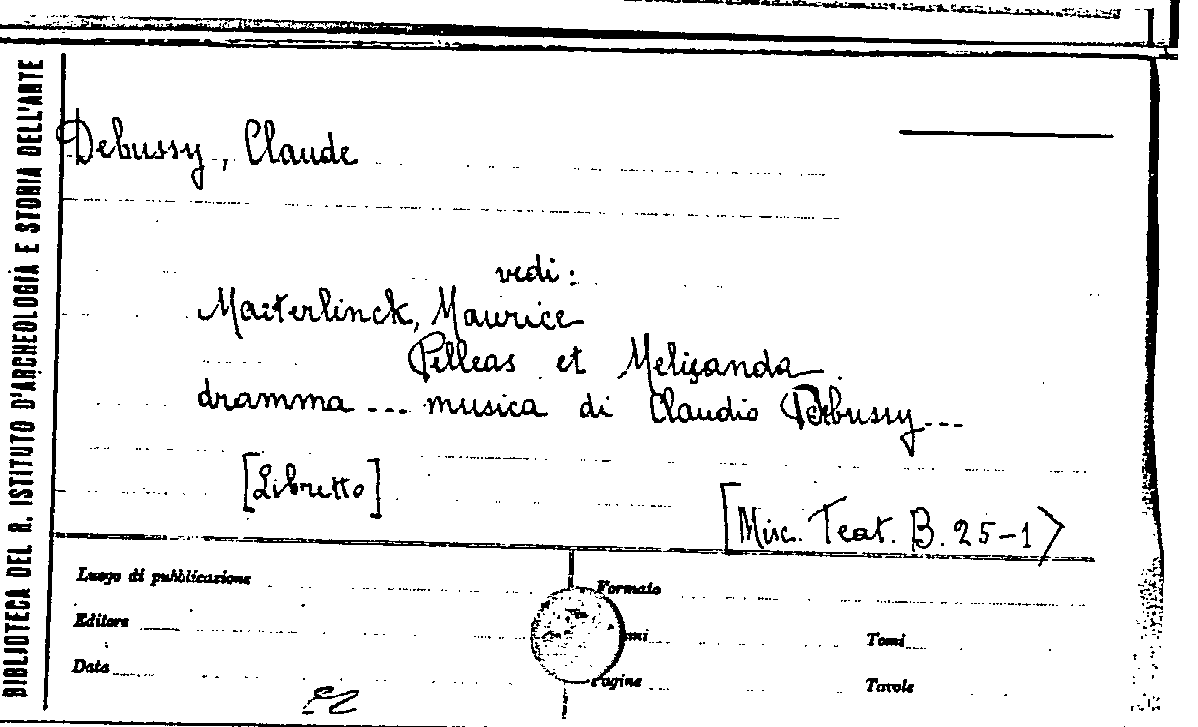 BIBLIOTECA DEL R. ISTITUTO D'ARCHEOLOGIA E STORIA DELL'ARTE
Debussy, Claude
vedi:
Maeterlinck, Maurice
Pelleas et Melisanda
dramma ... musica di Claudio Debussy ...
[Libretto]
[Misc. Teat. B. 25-1>
Luogo di pubblicazione
Formato
Editore
Tomi
Data
Pagine
Tavole